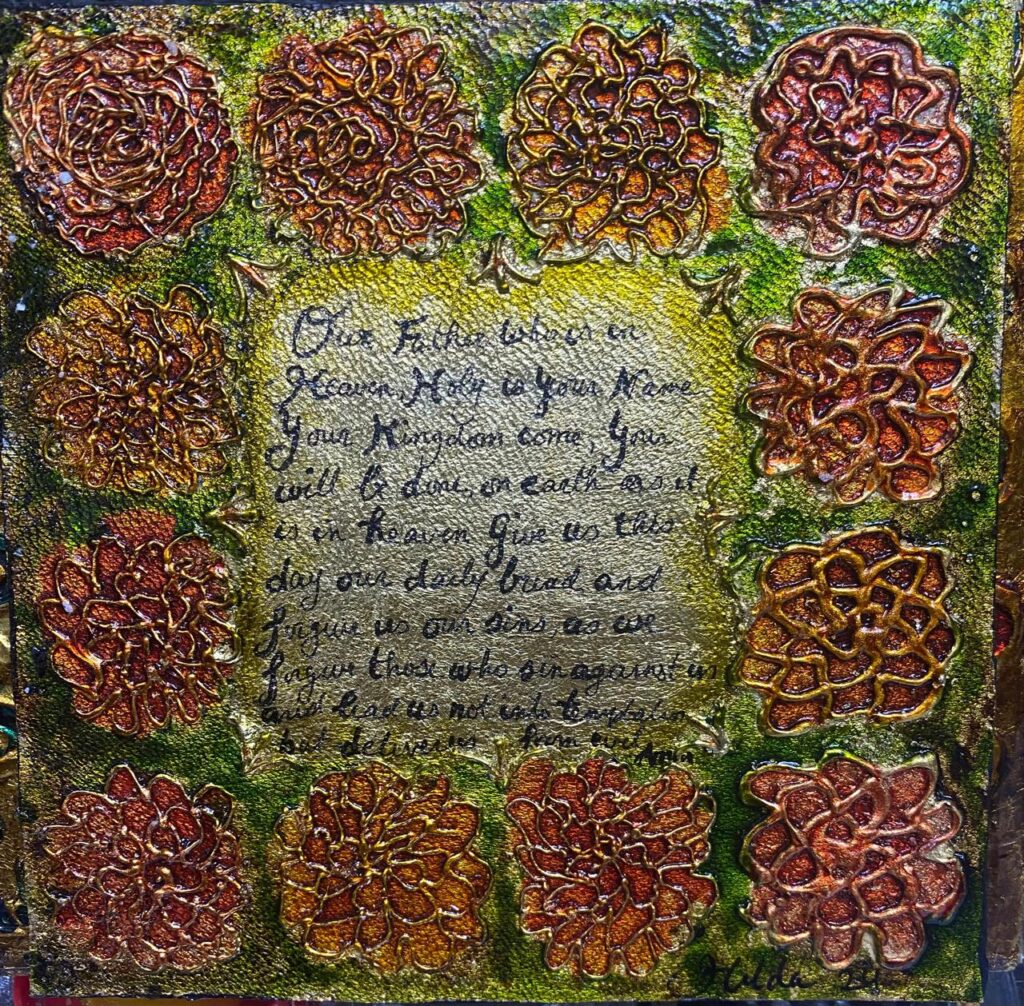 Our Father who is in
Heaven, Holy is Your Name
Your Kingdom come, Your
will be done, on earth as it
is in heaven Give us this
day our daily bread and
forgive us our sins, as we
forgive those who sin against us
and lead us not into temptation
but deliver us from evil
Amen
Hilda